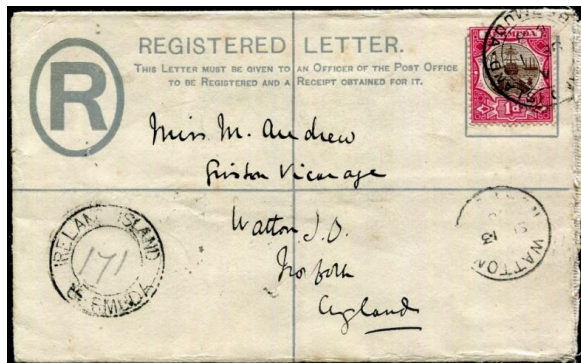 REGISTERED LETTER.
THIS LETTER MUST BE GIVEN TO AN OFFICER OF THE POST OFFICE
TO BE REGISTERED AND A RECEIPT OBTAINED FOR IT.
R
BERMUDA
1d
Miss M. Andrew
Griston Vicarage
Watton S.O.
Norfolk
England
IRELAND ISLAND
171
BERMUDA
WATTON
13